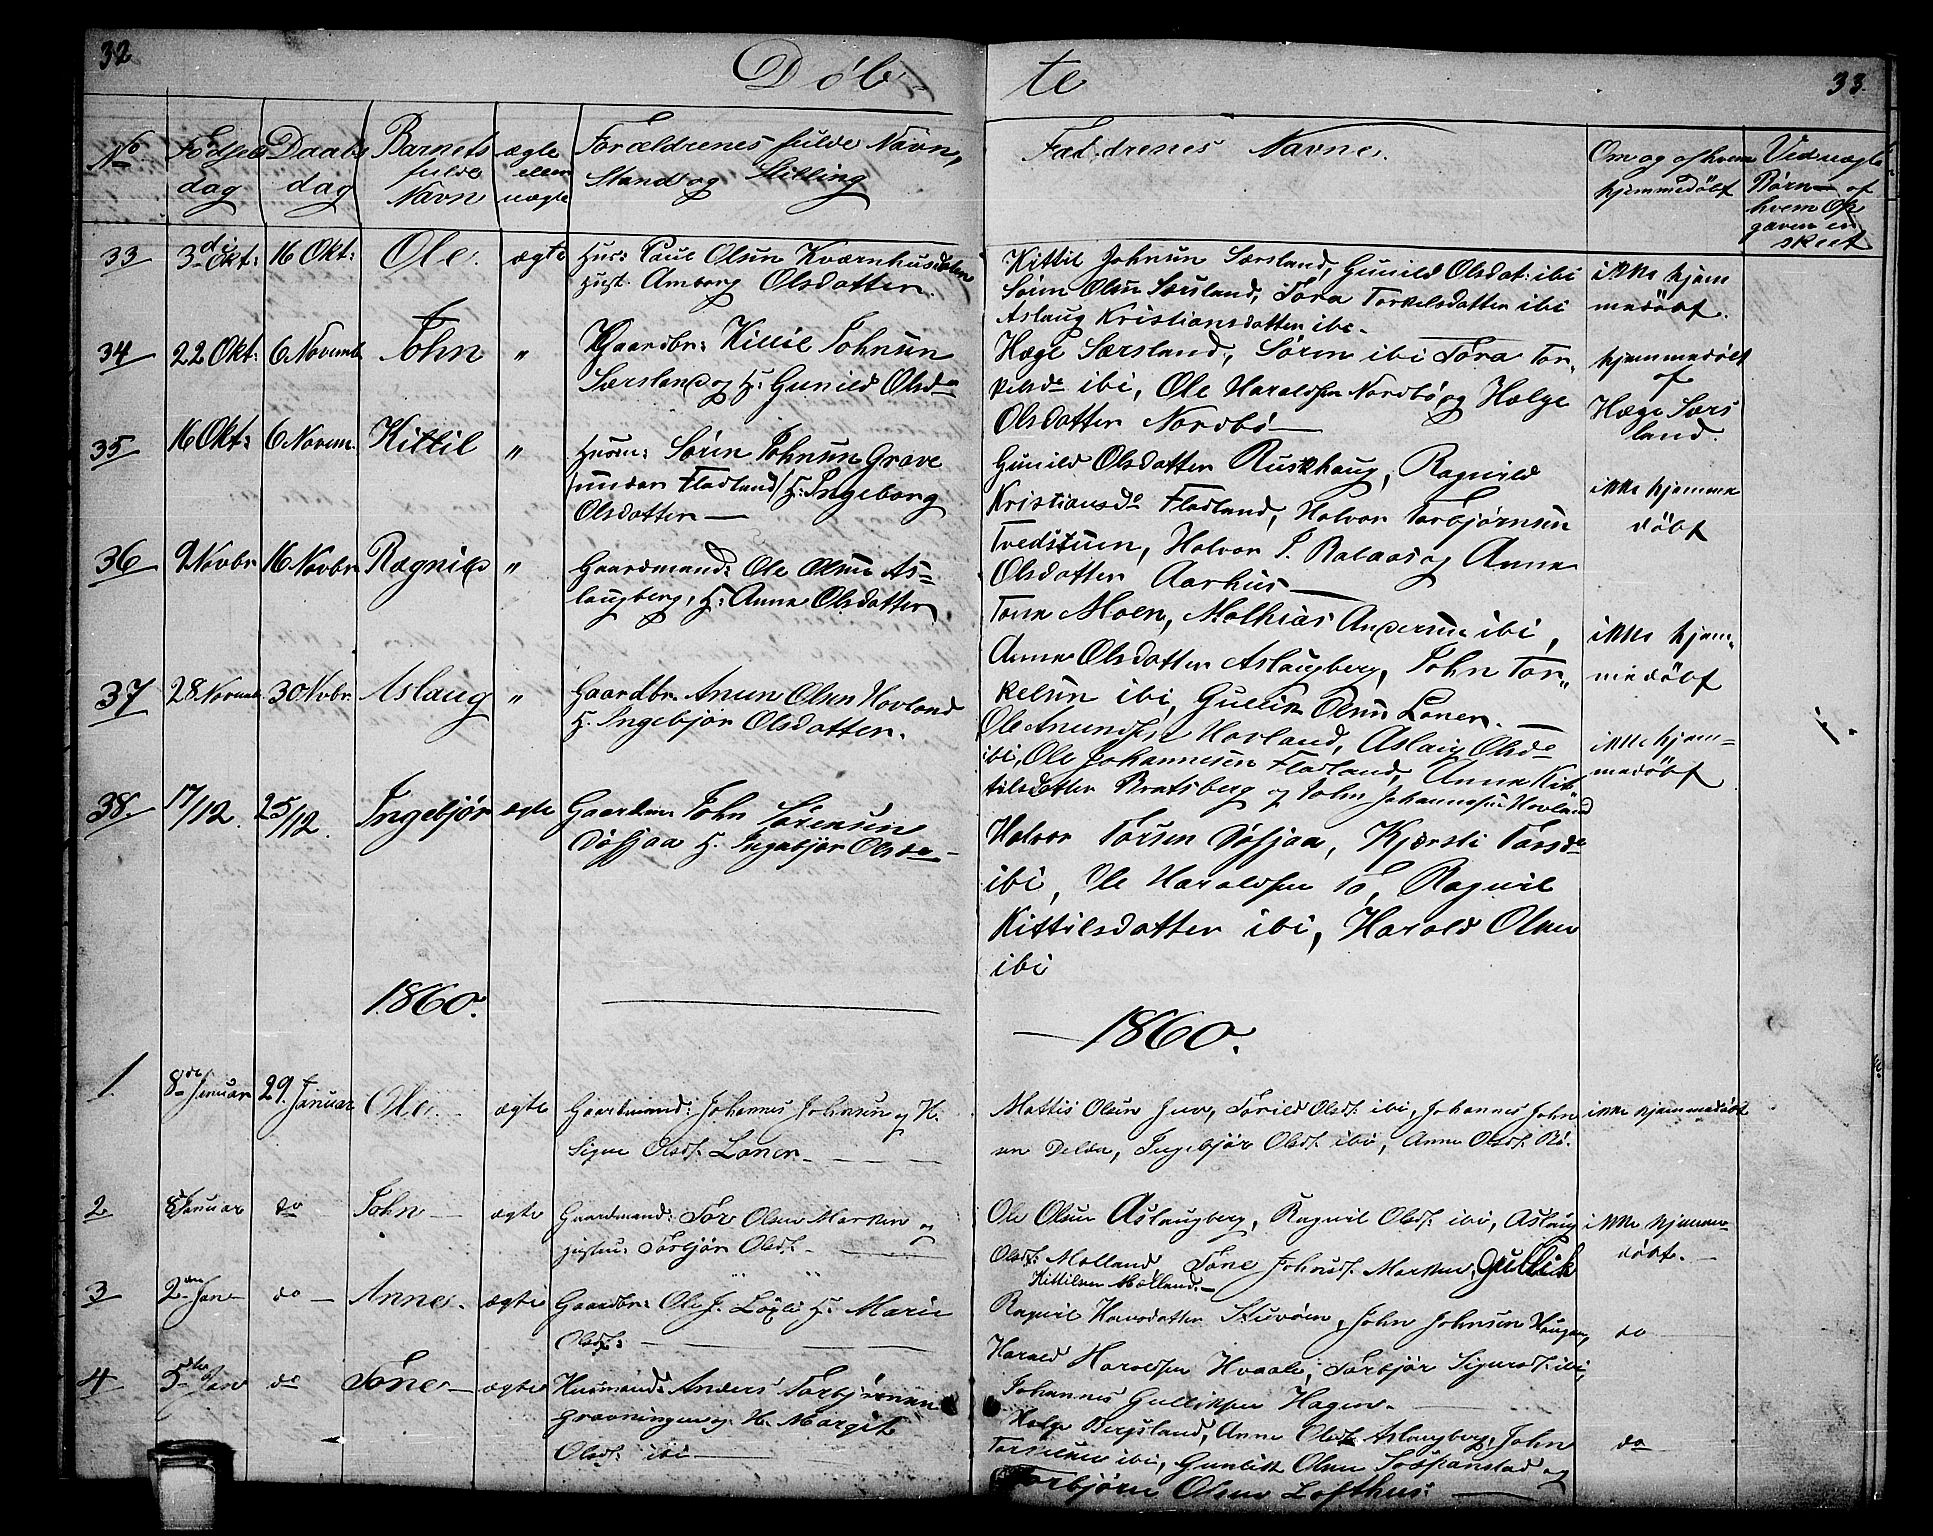 32
Døb-
te
33.
No
Fødsels
dag
Daabs
dag
Barnets
fulde
Navn
ægte
eller
uægte
Forældrenes fulde Navn,
Stand og Stilling
Faddrenes Navne.
Om og af hvem
hjemmedöbt
Ved uægte
Børn – af
hvem Op
gaven er
skeet
33
3di Okt:
16 Okt:
Ole.
ægte
Husm: Paul Olsen Kværnhusdalen
Hust. Amborg Olsdatter.
Kittil Johnsen Særsland, Gunild Olsdat: ibi
Sören Olsen Særsland, Tora Torkelsdatter ibi
Aslaug Kristiansdatter ibi.
ikke hjem
medöbt.
34
22 Okt:
6 Novemb
John
"
Gaardbr: Kittil Johnsen
Særsland og H: Gunild Olsda
Hæge Særsland, Sören ibi Tora Tor-
kelsda ibi, Ole Haraldsen Nordbö og Hælge
Olsdatter Nordbö
hjemmedöbt
af
Hæge Særs
land.
35
16 Okt:
6 Novem.
Kittil
"
Husm: Sören Johnsen Grave
under Fladland, H: Ingeborg
Olsdatter
Gunild Olsdatter Ruskhaug, Ragnild
Kristiansda Fladland, Halvor Torbjørnsen
Tvedstuen, Halvor S. Balaas og Anne
Olsdatter Aarhus
ikke hjemme
döbt
36
9 Novbr
16 Novbr
Ragnild
"
Gaardmand: Ole Olsen As-
laugberg, H: Anne Olsdatter
Tone Moen, Mathias Andersen ibi,
Anne Olsdatter Aslaugberg, John Tor-
kelsen ibi, Gullik Olsen Loner.
ikke hjem-
medöbt
37
28 Novemb.
30 Novbr.
Aslaug
"
Gaardbr. Anun Olsen Hovland
H. Ingebjör Olsdatter.
Ole Anundsen Hovland, Aslaug Olsda
ibi, Ole Johannesen Fladland, Anne Kit-
tilsdatter Bratsberg og John Johannessen Hovland
ikke hjem-
medöbt
38.
17/12.
25/12.
Ingebjör
ægte
Gaardm: John Sörensen
H. Ingebjör Olsda
Halvor Torsen
Kjærsti Torsda
ibi, Ole Haraldsen
Ragnil
Kittilsdatter ibi, Harald Olsen
ibi
1860.
1860.
1
8de Januar
29. Januar
Ole
ægte
Gaardmand: Johannes Johnsen og H.
Signe Olsdt. Loner
Mattis Olsen Juv, Torild Olsdt. ibi, Johannes John
sen Ingebjör Olsdt. ibi, Anne Olsdt. Bö.
ikke hjemmedöbt
2
8 Januar
do
John
ægte
Gaardmand: Tor Olsen Marken og
hustru: Torbjör Olsdt.
Ole Olsen Aslaugberg, Ragnil Olsdt. ibi, Aslaug
Olsdt. Molland, Tone Johnsdt. Marken, Gullik
Kittilsen Molland.
ikke hjemme-
döbt.
3
2den Jan
do
Anne.
ægte
Gaardbr: Ole J. H: Marie
Olsdt:
Ragnil John Johnsen Haugen,
Harald Haraldsen Hvaale, Torbjör Sigursdt. ibi,
Johannes Gulliksen Hagen.
do
4
5te Jan
do
Tone
ægte
Husmand: Anders Torbjörnsen
Gravningen og H. Margit
Olsdt: ibi
Hælge Bergsland, Anne Olsdt. Aslaugberg, John
Torsen ibi, Gunlik Olsen og
Torbjörn Olsen Lofthus:
do